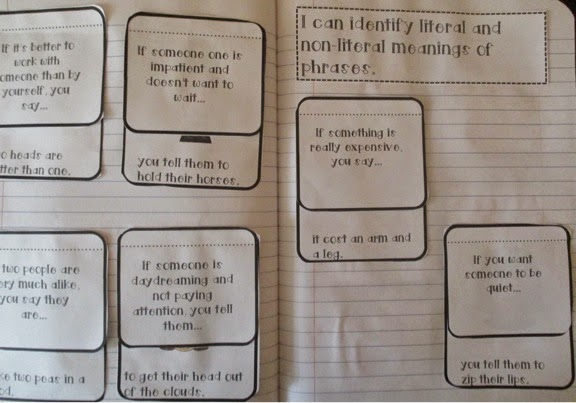 If it's better to
work with
omeone than by
yourself, you
say...
o heads are
tter than one.
If someone one is
impatient and
doesn't want to
wait...
you tell them to
hold their horses.
two people are
ery much alike,
you say they
are...
ke two peas in a
od.
If someone is
daydreaming and
not paying
attention, you tell
them...
to get their head out
of the clouds.
I can identify literal and
non-literal meanings of
phrases.
If something is
really expensive,
you say...
it cost an arm and
a leg.
If you want
someone to be
quiet...
you tell them to
zip their lips.